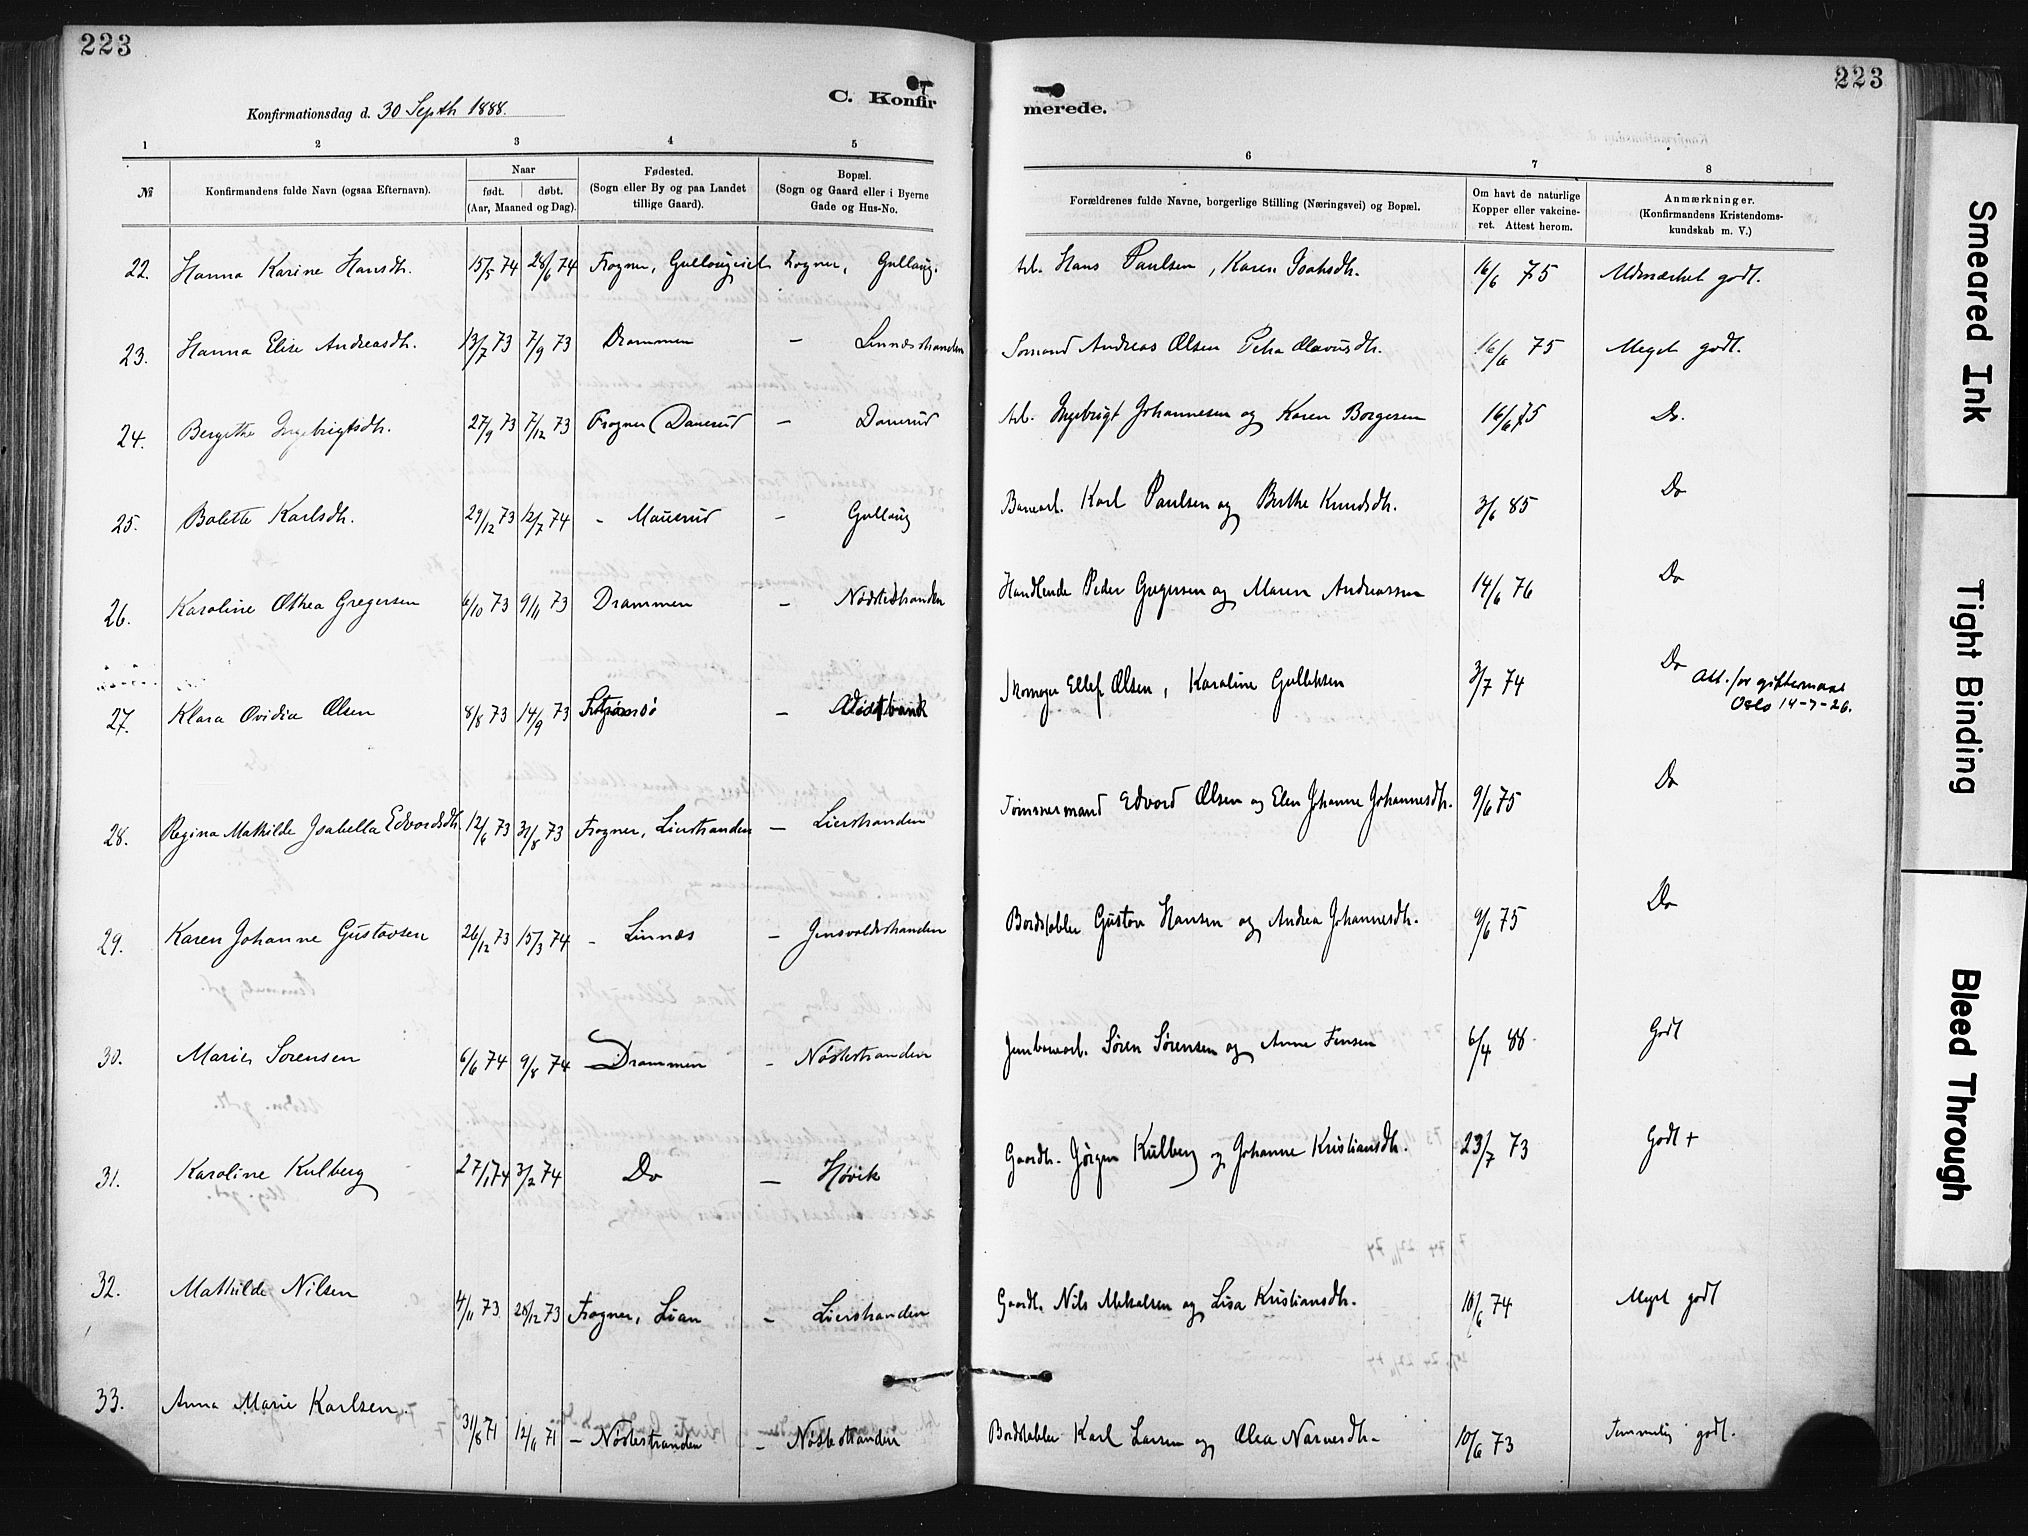 223
223
Konfirmationsdag d. 30 Septb 1888.
C. Konfir
merede.
1 2 3 4 5
6 7 8
№ Konfirmandens fulde Navn (ogsaa Efternavn). Naar født. døbt. (Aar, Maaned og Dag). Fødested. (Sogn eller By og paa Landet tillige Gaard). Bopæl. (Sogn og Gaard eller i Byerne Gade og Hus-No.
Forældrenes fulde Navne, borgerlige Stilling (Næringsvei) og Bopæl. Om havt de naturlige Kopper eller vakcineret. Attest herom. Anmærkninger. (Konfirmandens Kristendomskundskab m. V.)
22. Hanna Karine Hansdh. 15/5 74 28/6 74 Frogner, Gullougeiet Frogner, Gulloug. Arb. Hans Paulsen, Karen Isaksdh. 16/6 75 Udmærket godt.
23. Hanna Elise Andreasdh. 13/7 73 7/9 73 Drammen – Linnesstranden Sømand Andreas Olsen Petra Olavusdh. 16/6 75 Meget godt.
24. Bergithe Ingebrigtsdh. 27/9 73 7/12 73 Frogner Danerud – Danerud Arb. Ingebrigt Johannesen og Karen Borgersen 16/6 75 Do.
25. Bolette Karlsdh. 29/12 73 12/7 74 – Mauerud – Gulloug Banearb. Karl Paulsen og Berthe Knudsdh. 3/6 85 Do
26. Karoline Othea Gregersen 6/10 73 9/11 73 Drammen – Nøstestranden Handlende Peder Gregersen og Maren Andreassen 14/6 76 Do
27. Klara Ovidia Olsen 8/8 73 14/9 73 Strømsø – Skomager Ellef Olsen, Karoline Gulliksen 3/7 74 Do Att. for giftermaal
Oslo 14-7-26.
28. Regina Mathilde Isabella Edvardsdh. 12/6 73 31/8 73 Frogner, Lierstranden – Lierstranden Tømmermand Edvard Olsen og Elen Johanne Johannesdh. 9/6 75 Do
29. Karen Johanne Gustavsen 26/12 73 15/3 74 – Linnes – Jensvoldstranden Bordstabler Gustav Hansen og Andrea Johannesdh. 9/6 75 Do
30. Marie Sorensen 6/6 74 9/8 74 Drammen – Nøstestranden Jernbanearb. Søren Sørensen og Anne Jensen 6/4 88. Godt
31. Karoline Kulberg 27/1 74 3/2 74 Do – Høvik Gaardb. Jørgen Kulberg og Johanne Kristiansdh. 23/7 73 Godt +
32. Mathilde Nilsen 4/11 73 26/12 73 Frogner, Lian – Lierstranden Gaardb. Nils Mikalsen og Lisa Kristiansdh. 10/6 74 Meget godt
33. Anna Marie Karlsen. 31/8 71 12/11 71 – Nøstestranden – Nøstestranden Bordstabler Karl Larsen og Olea Narvesdh. 10/6 73 Temmelig godt.
Smeared Ink
Tight Binding
Bleed Through